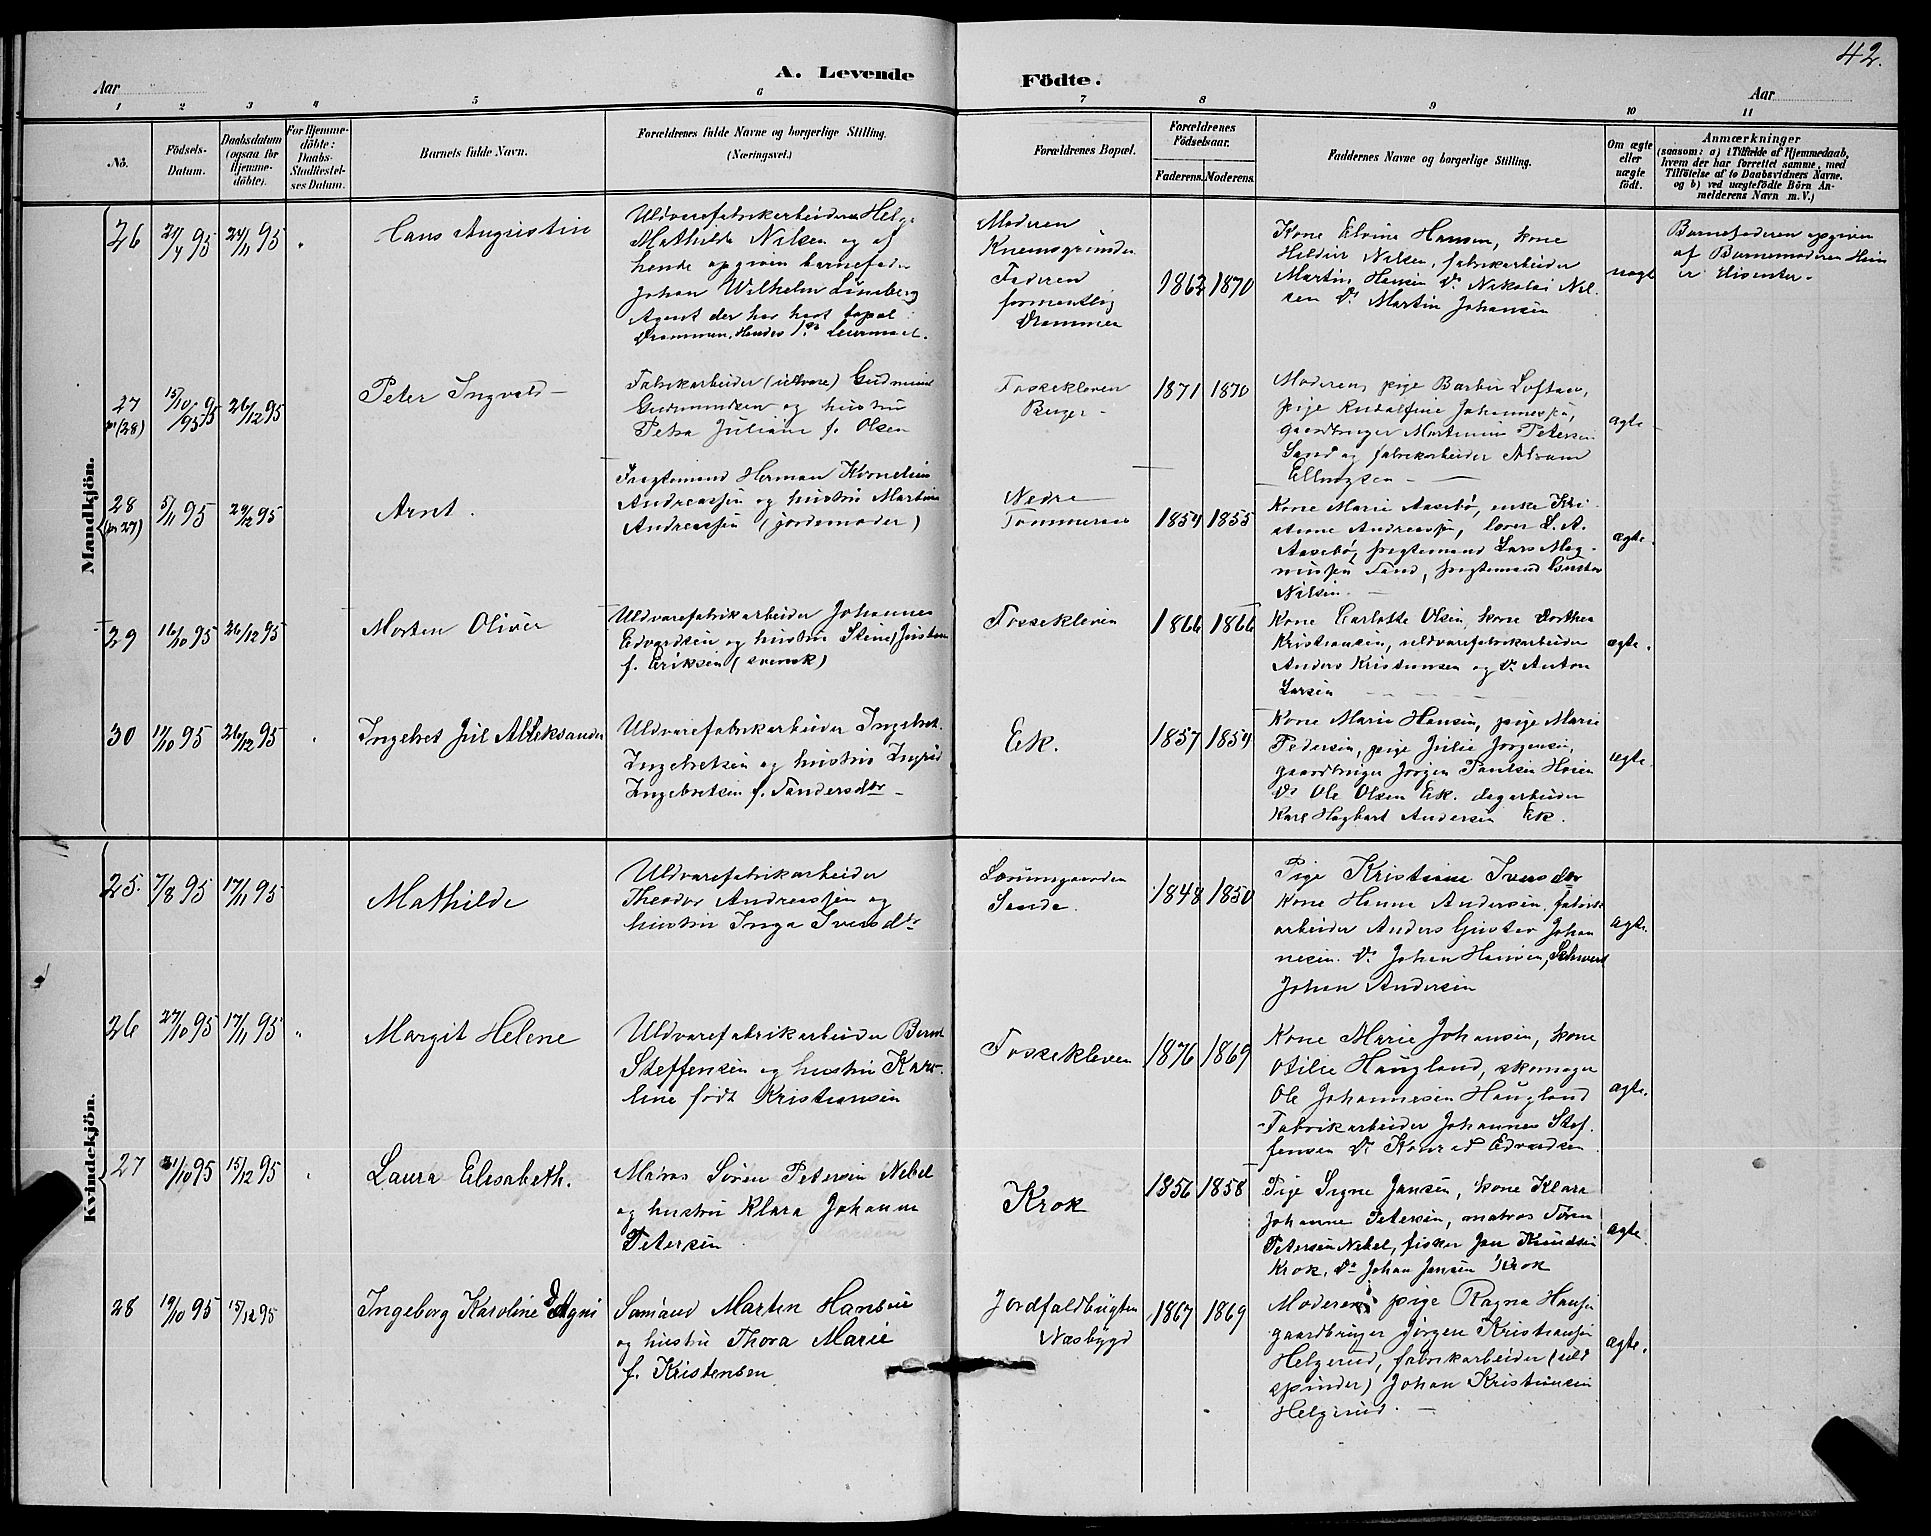 42.
A. Levende Födte.
Aar
Aar
1 2 3 4 5 6 7 8 9 10 11
No.
Födsels-
Datum.
Daabsdatum
(ogsaa for
Hjemme-
döbte).
For Hjemme-
döbte:
Daabs-
Stadfæstel-
ses Datum.
Barnets fulde Navn.
Forældrenes fulde Navne og borgerlige Stilling.
(Næringsvei.)
Forældrenes Bopæl.
Forældrenes
Födselsaar.
Faderens. Moderens.
Faddernes Navne og borgerlige Stilling.
Om ægte
eller
uægte
födt.
Anmærkninger
(saasom: a) i Tilfælde af Hjemmedaab,
hvem der har forrettet samme, med
Tilföielse af to Daabsvidners Navne,
og b) ved uægtefödte Börn An-
melderens Navn m. V.)
Mandkjön.
26
21/4 95
24/11 95
Hans Augustin
Uldvarefabrikarbeider Helga
Mathilde Nilsen og af
hende opgiven barnefader
Johan Wilhelm Lineberg
Agent der har havt bopæl i
Drammen. Hendes 1ste Leiermaal.
Moderen
Knemsgrinden
Faderen
formentlig
Drammen
1867 1870
Kone Elvine Hansen, kone
Hildur Nilsen, fabrikarbeider
Martin Hansen Do Nikolai Nil-
sen Do Martin Johansen
uægt
Barnefaderen opgiven
af Barnemoderen Hun
er Disenter.
27
(28)
15/10 95
26/12 95
Peter Ingvald
Fabrikarbeider (uldvare) Gudmund
Gudmundsen og hustru
Petra Juliane f. Olsen
Fossekleven
Berger
1871 1870
Moderen, pige Barbra Loftsen,
pige Rudolfine Johannesen,
gaardbruger Martinius Petersen
Sand og fabrikarbeider Abram
Ellingsen
ægte
28
(27)
5/11 95
29/12 95
Arnt.
Fragtemand Herman Kornelius
Andreassen og hustru Martine
Andreassen (jordemoder)
Nedre
Tommeraas
1854 1855
Kone Marie Aasebö, enke Kri-
stine Andreassen, lærer L. A.
Aasebö, fragtemand Lars Mag-
nussen Sand, fragtemand Gustav
Nilsen.
ægte.
29
16/10 95
26/12 95
Morten Oliver
Uldvarefabrikarbeider Johannes
Edvardsen og hustru Stine Justine
f. Eriksen (svensk)
Fossekleven
1866 1866
Kone Carlotte Olsen, kone Dorthea
Kristiansen, uldvarefabrikarbeider
Anders Kristiansen og Do Anton
Larsen
ægte.
30
11/10 95
26/12 95
Ingebret Jul Aleksander
Uldvarefabrikarbeider Ingebret
Ingebretsen og hustru Ingrid
Ingebretsen f. Tandersdtr
Ek.
1857 1854
Kone Marie Hansen, pige Marie
Pedersen, pige Julie Jorgensen,
gaardbruger Jorgen Paulsen Hoien
Do Ole Olsen Ek. dagarbeider
Karl Hagbart Andersen Ek.
ægte.
Kvindekjön.
25.
7/8 95
17/11 95
Mathilde
Uldvarefabrikarbeider
Theodor Andreassen og
hustru Inga Iversdtr
Sande.
1848 1850
Pige Kristiane Iversdtr
Kone Hanna Andersen, fabrik-
arbeider Anders Gustav Johan
nesen. Do Johan Hansen,
Johan Andersen
ægte.
26
27/10 95
17/11 95
Margit Helene
Uldvarefabrikarbeider Bernt
Steffensen og hustru Karo-
line födt Kristiansen
Fossekleven
1876 1869
Kone Marie Johansen, kone
Otilie Haugland, skomager
Ole Johannesen Haugland
Fabrikarbeider Johannes Stef-
fensen Do Konrad Edvardsen
ægte.
27
31/10 95
15/12 95
Laura Elisabeth.
Matros Sören Petersen Nebel
og hustru Klara Johanne
Petersen
Krok
1856 1858
Pige Signe Jansen, kone Klara
Johanne Petersen, matros Sören
Petersen Nebel, fisker Jan Knudsen
Krok, Do Johan Jansen Krok
ægte.
28
19/10 95
15/12 95
Ingeborg Karoline Dagni
Sömand Martin Hansen
og hustru Thora Marie
f. Kristensen
Jordfaldbugten
Næsbygd
1867 1869
Moderen, pige Ragna Hansen
gaardbruger Jörgen Kristiansen
Helgerud, fabrikarbeider (uld
spinder) Johan Kristiansen
Helgerud.
ægte.